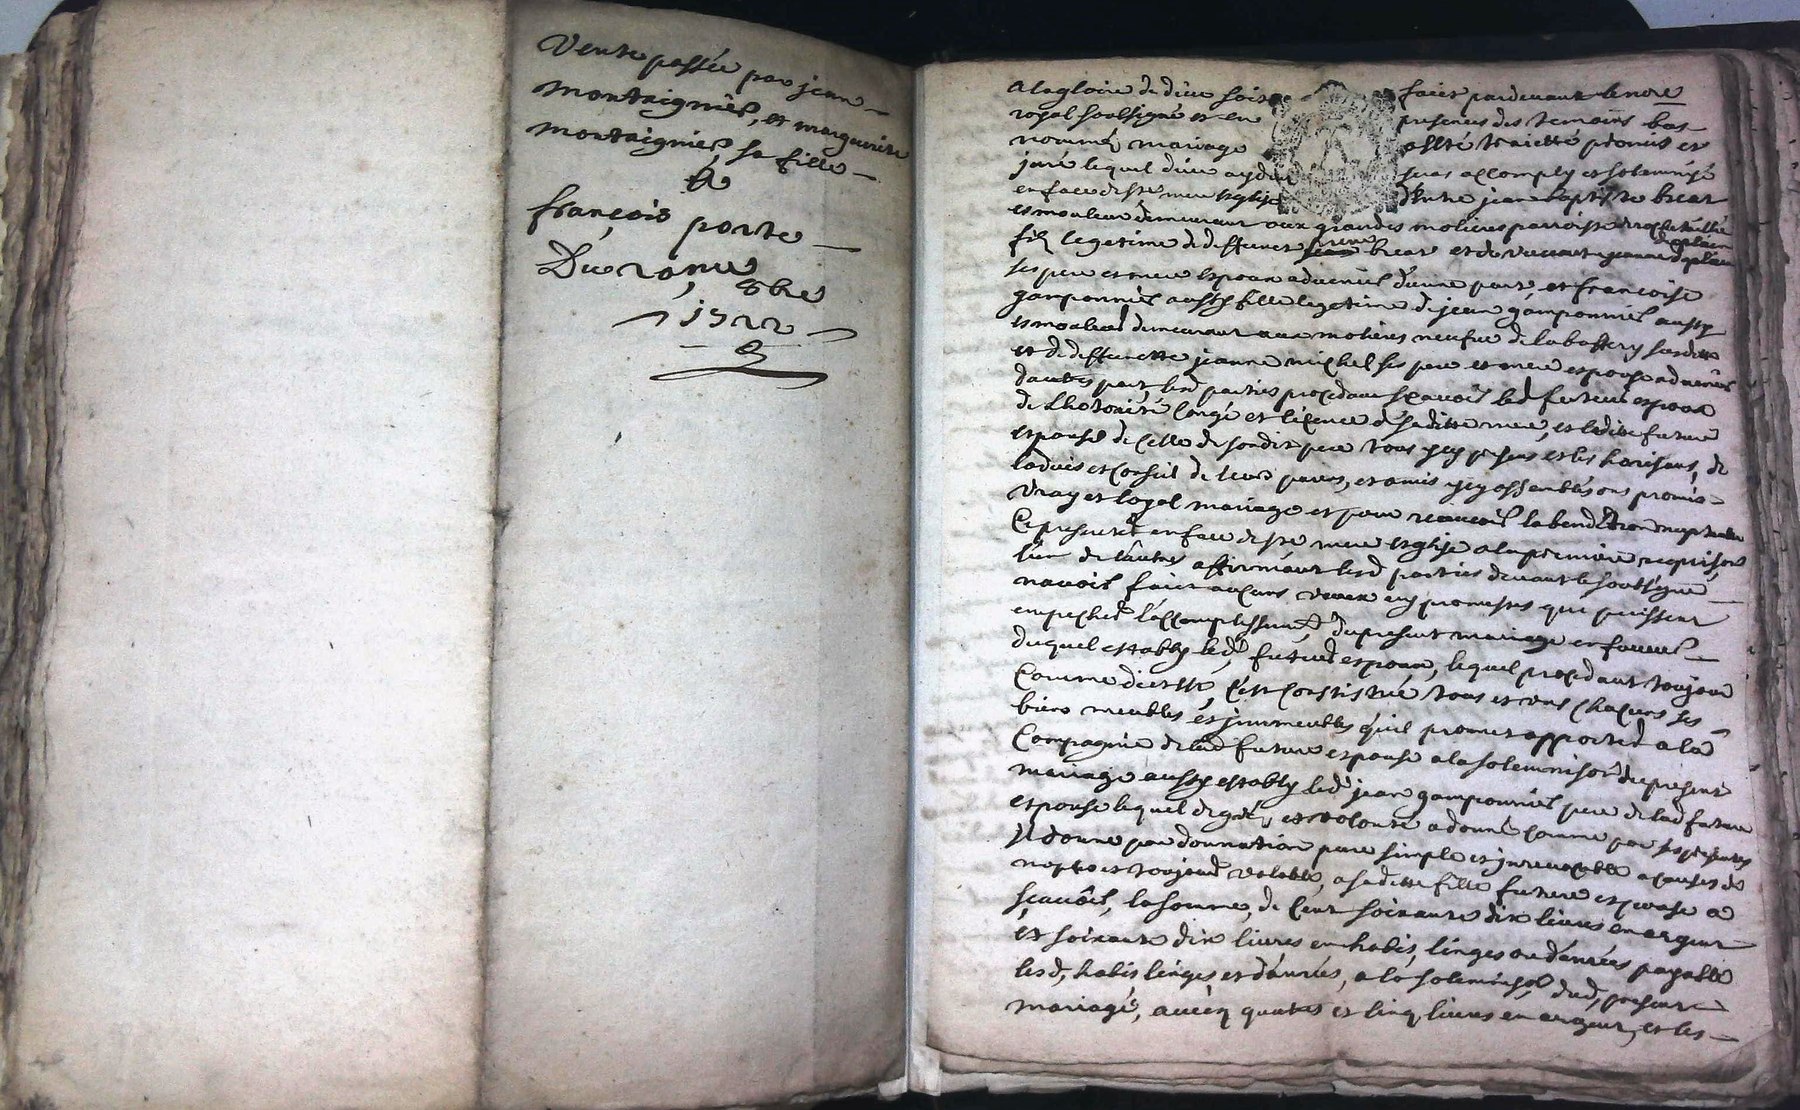 Vente passée par jean
montaignier, et marguerite
montaignier sa fille
A
françois porte
Du 8bre
1722
A la gloire de dieu soit faict pardevant le nore
royal soubsigné et en presences des temoins bas
nommés mariage a esté traietté promis et
juré lequel dieu aydant sera accomply et solemnisé
en face de ste mere esglise d'entre jean baptiste breat
et mouleur demeurant aux grandes molieres parroisse
fils legetime de deffunct breat et de vivante jeanne
ses pere et mere espoux advenir d'une part, et françoise
gamponnier aussy fille legetime de jean gamponnier aussy
demeurant aux molieres neufve de la susditte
et de deffunctte jeanne michel ses pere et mere espouse advenir
dautre part, lesd parties procedant sçavoir led futeur espoux
de Lhotorité Congé et licence de saditte mere, et laditte future
espouse de Celle de sondit pere tous ycy presens et les horisans, de
ladvis et Conseil de leurs parens, et amis ycy assemblés ont promis
vray et loyal mariage et pour recevoir la benediction nuptialle
se presenter en face de ste mere esglise a la premiere requisition
lun de lautre affirmant lesd parties devant le soubsigné
navoir faict aucuns veux ny promesses que puissent
empecher l'accomplissement du present mariage en faveur
duquel estably led futeur espoux, lequel procedant toujour
Comme dict est, s'est Constitué tous et uns chacuns ses
biens meubles et jmmeubles qu'il promet apporter a la
Compagnie de lad future espouse a la solemnisaon du present
mariage aussy estably led jean gamponnier pere de lad future
espouse lequel de gré, et volonté a donné comme par ses presentes
Jl donne par donnation pure simple et jrrevocable a causes de
nopces et toujours valable, a saditte fille future espouse a
sçavoir, la somme, de Cent soixante dix livres en argent
et soixante dix livres en habis, linges ou danrées payable
lesd, habis linges et danrées, a la solemnisaon dud, present
mariage, avecq quatre et cinq livres en argent, et les